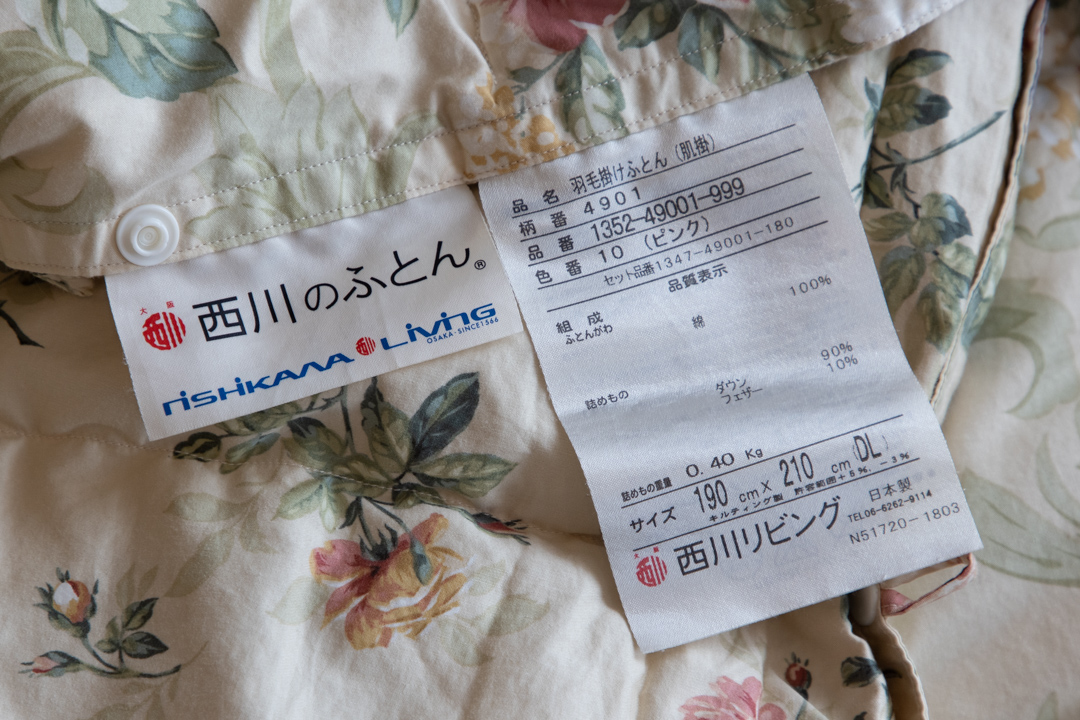 大阪
西川
西川のふとん®
NISHIKAWA 西川 Living
OSAKA・SINCE1566
品名 羽毛掛けふとん（肌掛）
柄番 4901
品番 1352-49001-999
色番 10（ピンク）
セット品番1347-49001-180
品質表示
組成
ふとんがわ 綿 100%
詰めもの ダウン 90%
フェザー 10%
詰めもの重量 0.40 Kg
サイズ 190 cm X 210 cm (DL)
キルティング製 許容範囲+5%,-3%
大阪
西川
西川リビング 日本製
TEL06-6262-9114
N51720-1803